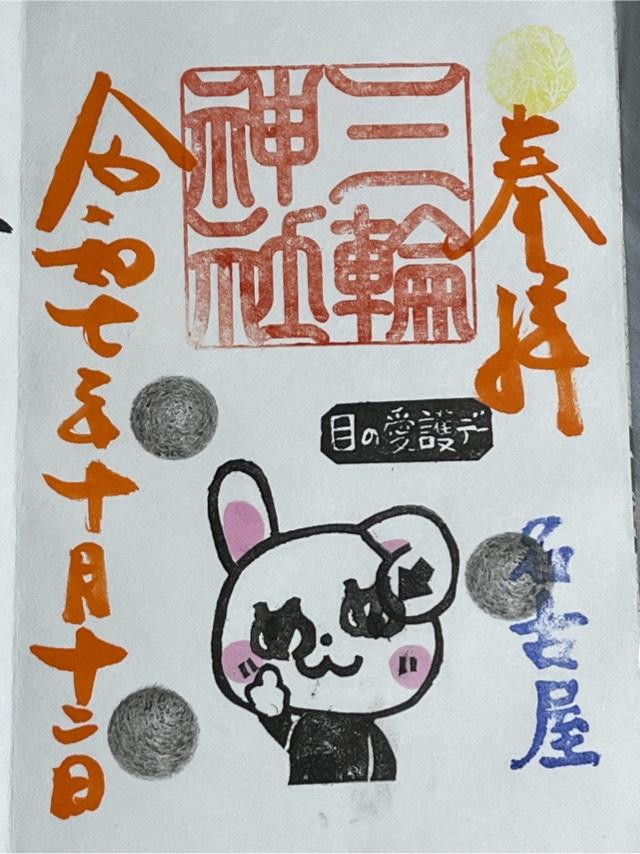 奉拝
三輪
神社
目の愛護デ
名古屋
令和七年十月十二日